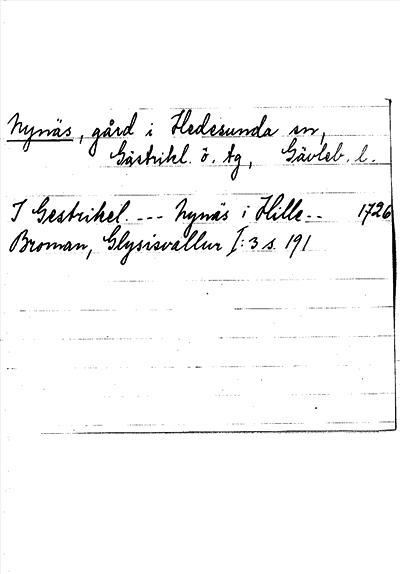 Nynäs, gård i Hedesunda sn,
Gästrikl. ö. tg, Gävleb. l.
I Gestrikel. --- Nynäs i Hille-- 1726
Broman, Glysisvallur I:3 s. 191